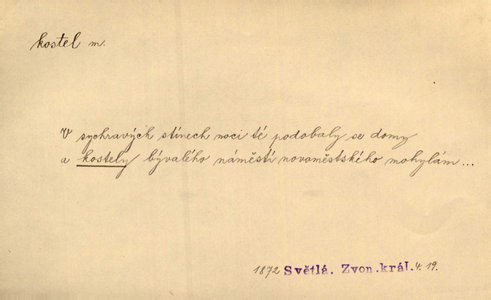 kostel m.
V sychravých stínech noci té podobaly se domy
a kostely bývalého náměstí novoměstského mohylám...
1872 Světlá. Zvon.král. 4. 19.